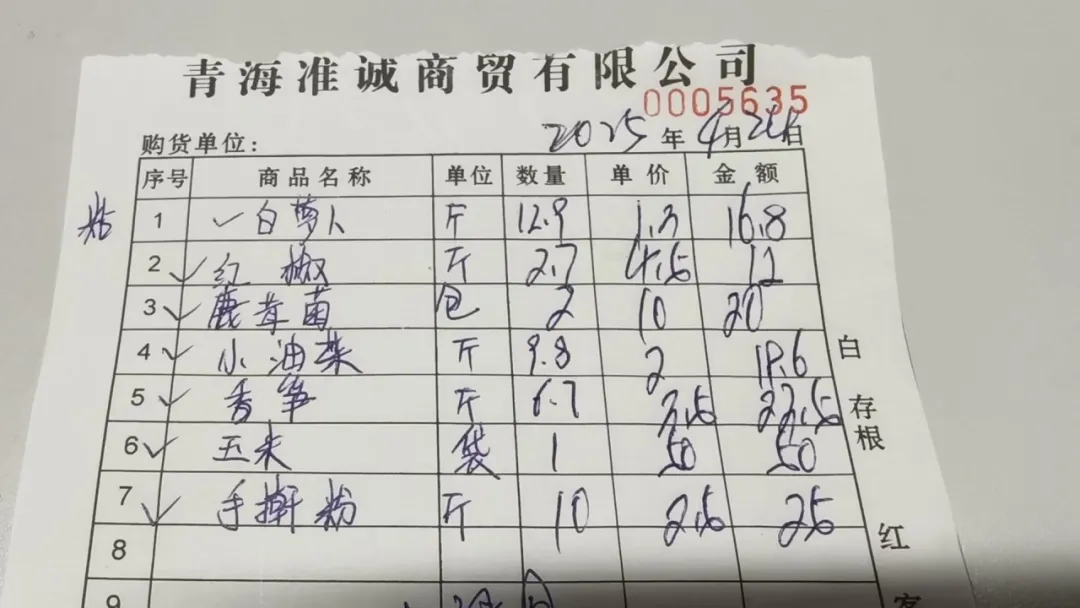 青海准诚商贸有限公司
0005635
购货单位: 2025年4月24日
序号 商品名称 单位 数量 单价 金额
1 ✓白萝卜 斤 12.9 1.3 16.8
2 ✓红椒 斤 2.7 4.5 12
3 ✓鹿茸菌 包 2 10 20
4 ✓小油菜 斤 9.8 2 19.6
5 ✓香笋 斤 6.7 22.5
6 ✓玉米 袋 1 50 50
7 ✓手擀粉 斤 10 2.5 25
8
9
白
存根
红
客